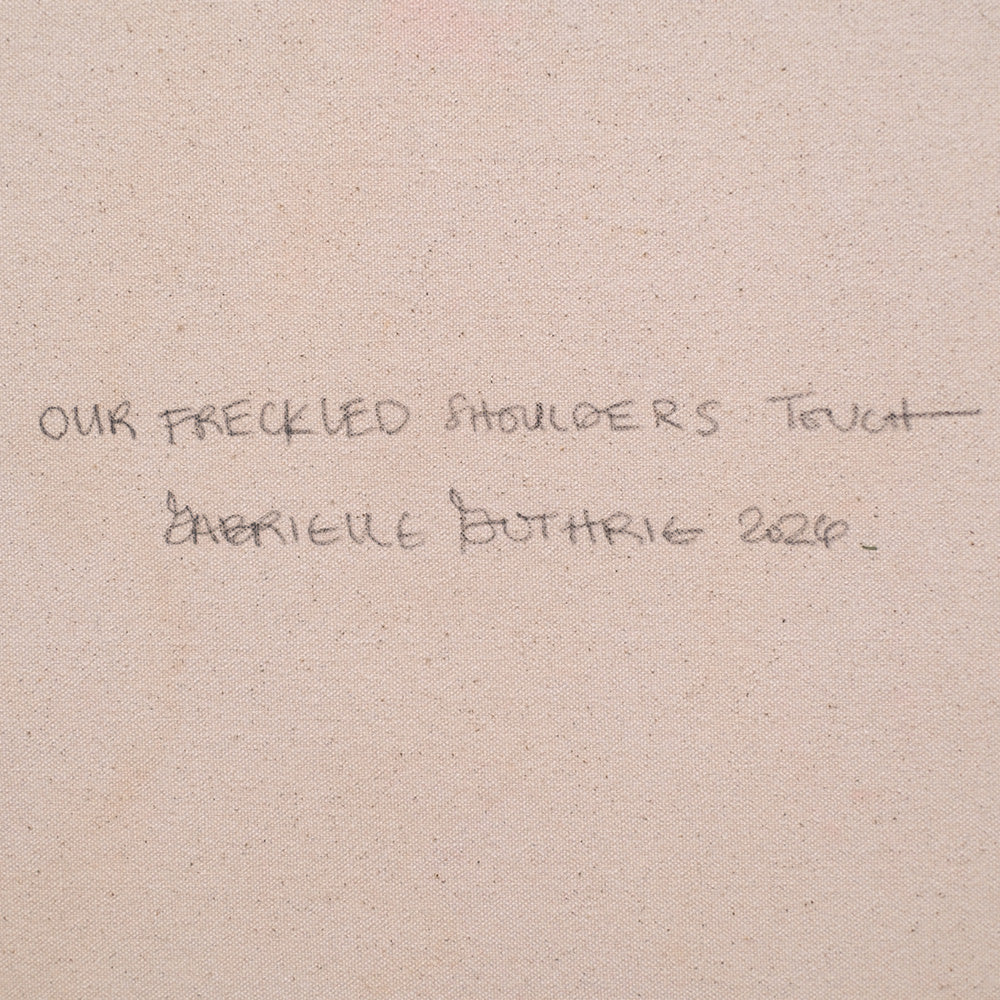 OUR FRECKLED SHOULDERS TOUCH
GABRIELLE GUTHRIE 2026